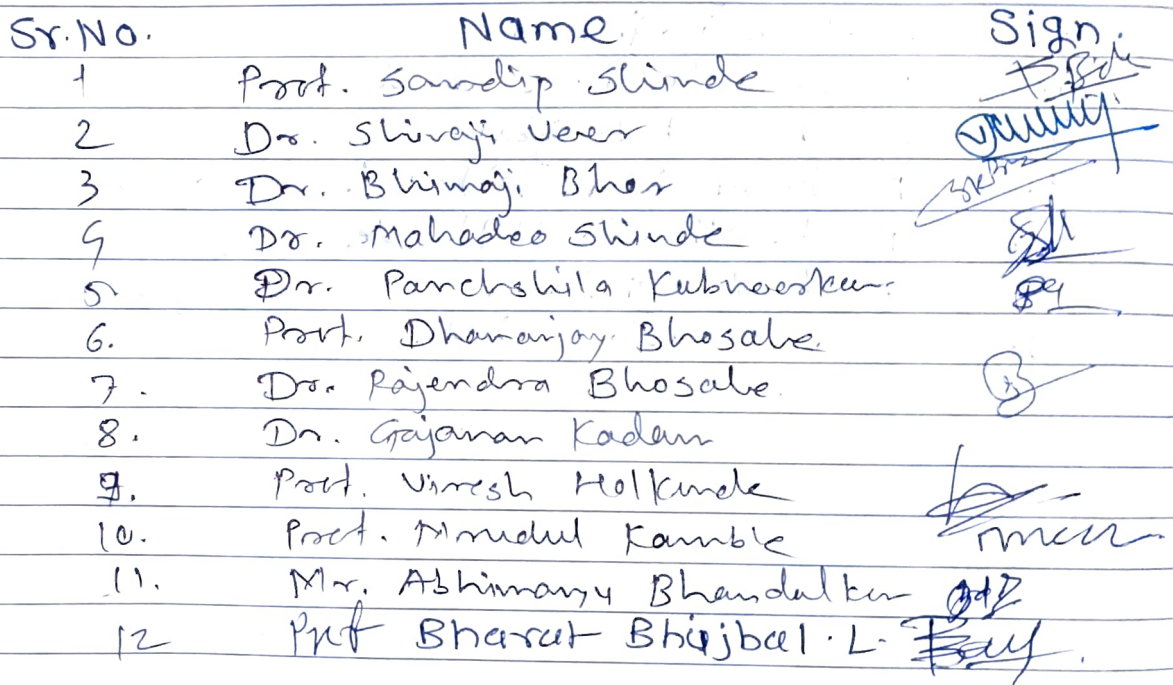 Sr. No. Name Sign.
1 Prof. Sandip Shinde
2 Dr. Shivaji Veer
3 Dr. Bhimaji Bhor
4 Dr. Mahadeo Shinde
5 Dr. Panchshila
6. Prof. Dhananjay Bhosale
7. Dr. Rajendra Bhosale
8. Dr. Gajanan Kadam
9. Prof. Viresh Holkunde
10. Prof. Mrudul Kamble
11. Mr. Abhimanyu Bhandalkar
12 Prof Bharat Bhujbal. L.